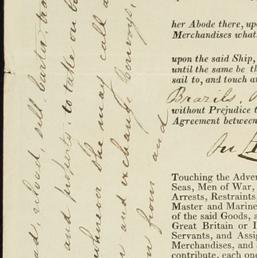 her Abode there, up
Merchandises what
upon the said Ship,
until the same be th
sail to, and touch a
Brazils,
without Prejudice t
Agreement between
Touching the Adver
Seas, Men of War,
Arrests, Restraints
Master and Marine
of the said Goods, a
Great Britain or I
Servants, and Assig
Merchandises, and
contribute, each one
reload, sell, barter,
and ports, to take on
the may call
and exchange
from and